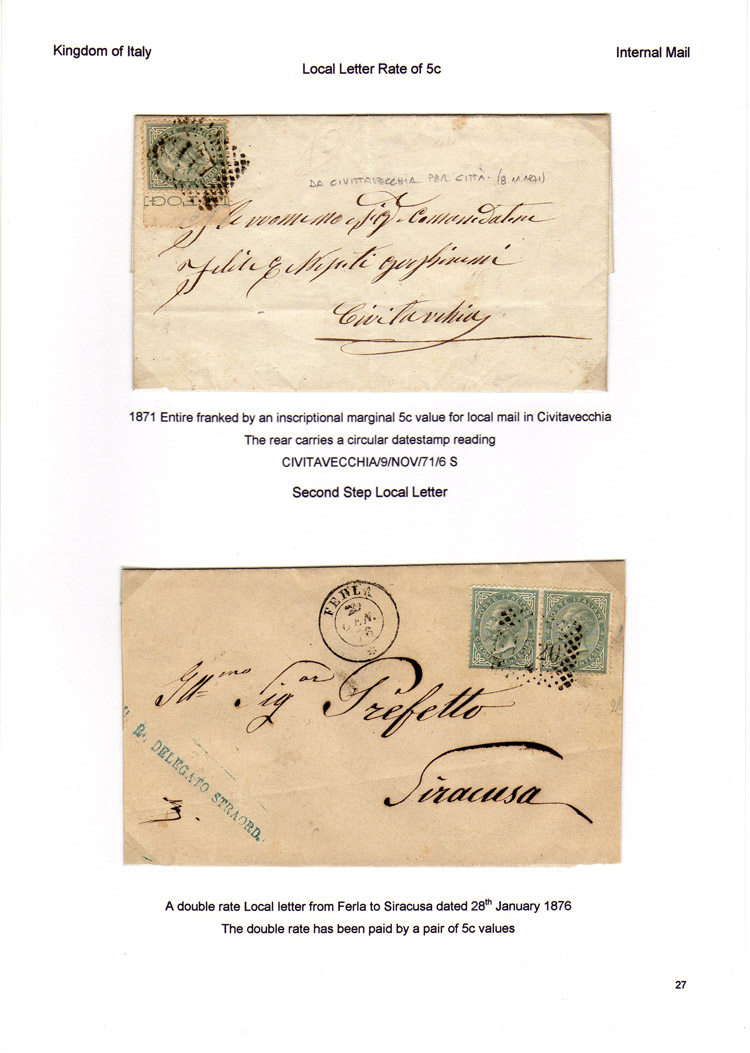 Kingdom of Italy
Internal Mail
Local Letter Rate of 5c
DA CIVITTAVECCHIA PER CITTÀ. (8 11 1871)
Comandatore
Civitavechia
1871 Entire franked by an inscriptional marginal 5c value for local mail in Civitavecchia
The rear carries a circular datestamp reading
CIVITAVECCHIA/9/NOV/71/6 S
Second Step Local Letter
FERLA
GEN.
76
POSTE ITALIANE
POSTE ITALIANE
Ill.mo Sigor Prefetto
Siracusa
DELEGATO STRAORD.
A double rate Local letter from Ferla to Siracusa dated 28th January 1876
The double rate has been paid by a pair of 5c values
27